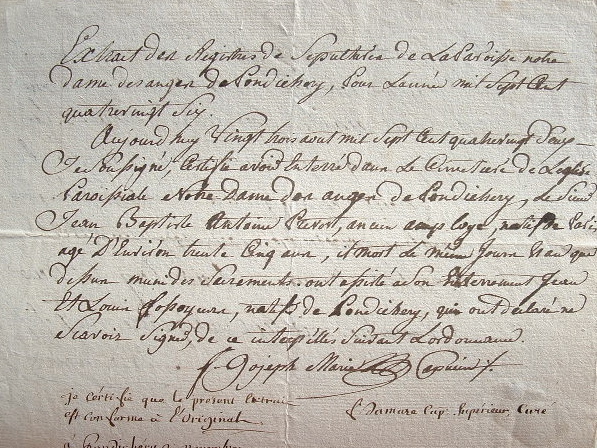 Extrait des Registres de Sepulthure de La Paroisse notre
dame des anges de Pondichery, Pour Lanné mil Sept Cent
quatrevingt Six.
Aujourdhuy Vingt trois aout mil Sept Cent quatrevingt
Je Soussigné, Certifie avoir Enterré dans Le Cimetiere de Leglise
Paroissiale Notre Dame des anges de Pondichery, Le Sieur
Jean Baptiste Antoine Prevost, ancien employé, natif de Paris
agé D'Environ trente Cinq ans, il mort Le même Jour
dessus muni des Sacrements. ont assisté a son Enterrement Jean
Et Louis fossoyeurs, natifs de Pondichery, qui ont declaré ne
Scavoir Signé, de ce interpellés Suivant Lordonnance.
f. Josseph Marie Capucin
je cértifie que le présent Extrait
est conforme à l'Original
Damase Cap. Supérieur Curé
à Pondichery